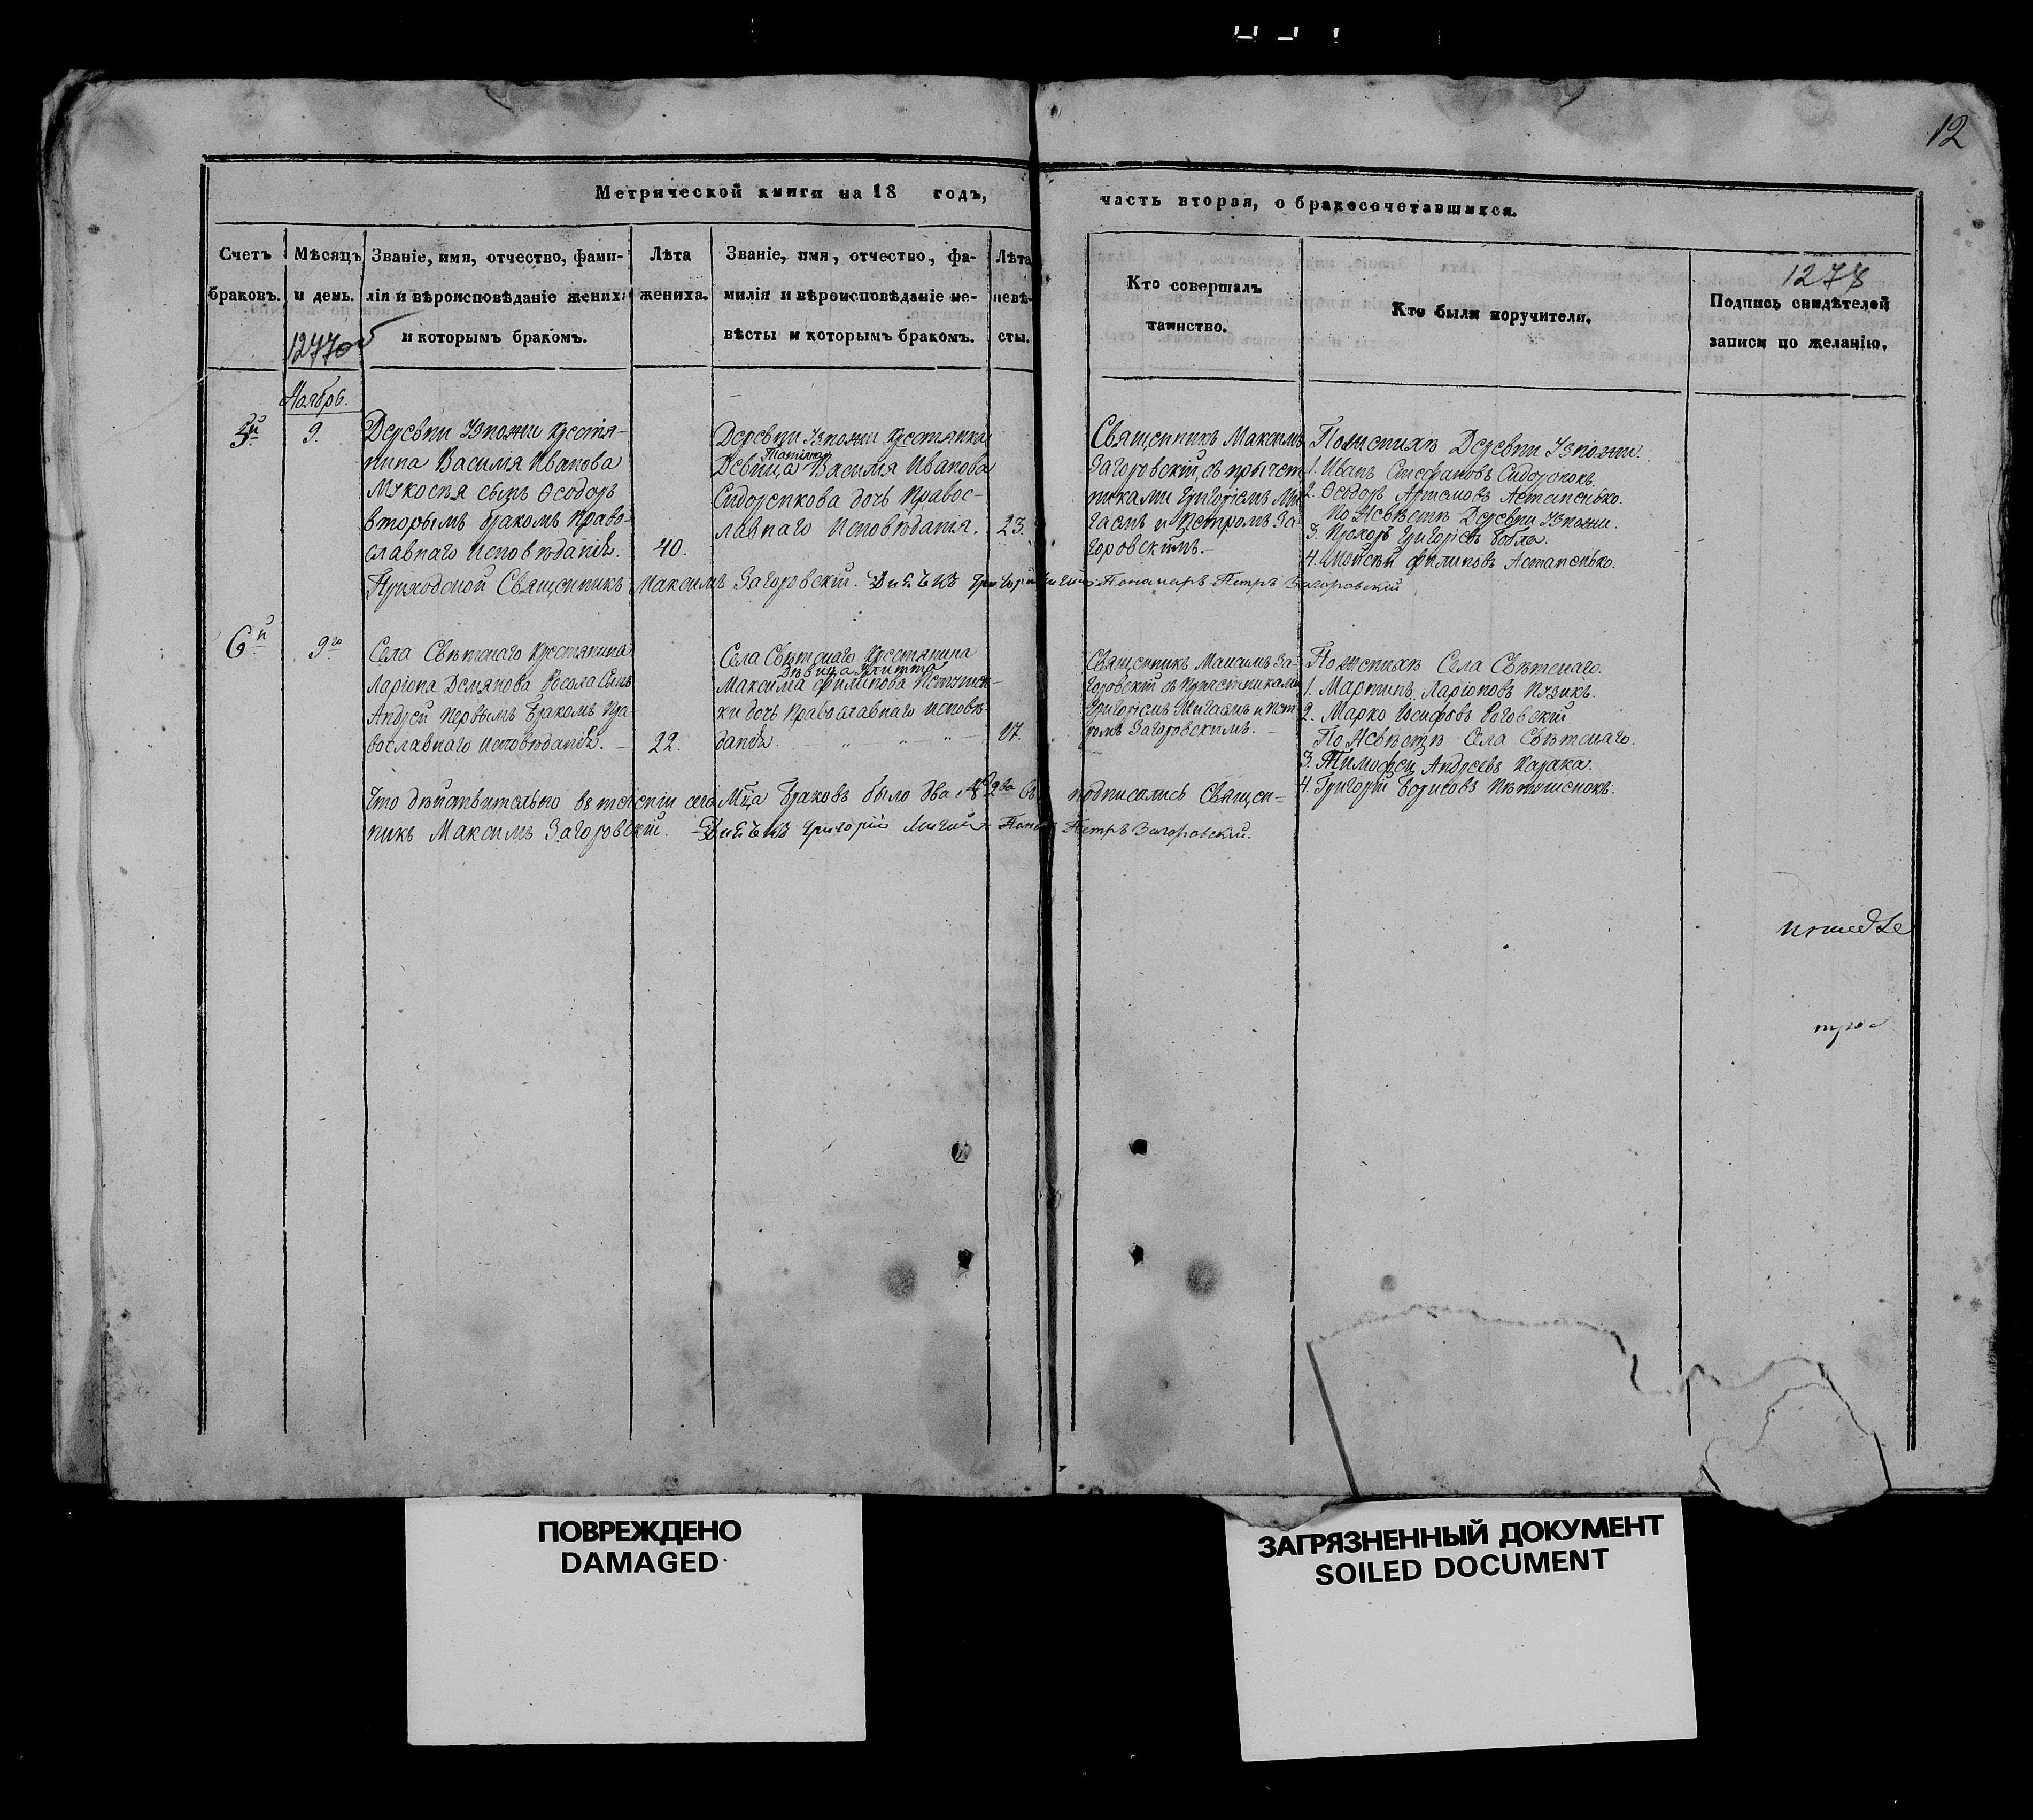 12
Метрической книги на 18 годъ,
часть вторая, о бракосочетавшихся.
Счетъ браковъ.
Мѣсяцъ и день.
Званіе, имя, отчество, фами-
лія и вѣроисповѣданіе жениха
и которымъ бракомъ.
Лѣта жениха.
Званіе, имя, отчество, фа-
милія и вѣроисповѣданіе не-
вѣсты и которымъ бракомъ.
Лѣта невѣ-
сты.
Кто совершалъ
таинство.
Кто были поручители.
1278
Подпись свидѣтелей
записи по желанію.
1277об
Ноябрь.
5й
9.
Деревни Узножи Крестя-
нина Василія Иванова
сынъ Ѳеодоръ
вторымъ бракомъ право-
славнаго исповѣданія.
40.
Деревни Узножи Крестянка
Девица Василія Иванова
Сидоренкова дочь Правос-
лавнаго Исповѣданія.
23.
Священникъ Максимъ
Загоровскій, съ причет-
никами Григоріемъ Ми-
гаемъ и Петромъ За-
горовскимъ.
По женихѣ Деревни Узножи.
1. Иванъ Стефановъ Сидоронокъ.
2. Ѳеодоръ Артемовъ Астапенько.
По Невѣстѣ Деревни Узножи.
3. Прохоръ Григоріевъ
4. Мойсѣй Филиповъ Астапенько.
Приходской Священникъ Максимъ Загоровскій. Дьячекъ Григорій Мигай Пономарь Петръ Загоровскій
6й
9го
Села Свѣтскаго Крестянина
Ларіона Демянова сынъ
Андрей Первымъ Бракомъ Пра-
вославнаго исповѣданія.
22.
Села Свѣтскаго Крестянина
Дѣвица
Максима Филипова
ки дочь Православнаго исповѣ-
данія.
17.
Священникъ Максимъ За-
горовскій съ Причетниками
Григоріемъ Мигаемъ и Пет-
ромъ Загоровскимъ.
По женихѣ Села Свѣтскаго.
1. Мартинъ Ларіоновъ Пузикъ.
2. Марко Іосифовъ Роговскій.
По Невѣстѣ Села Свѣтскаго.
3. Тимофей Андреевъ Казака.
4. Григорій Борисовъ
Что дѣйствительно въ теченіи сего Мца Браковъ было два № 2ва подписались Священ-
никъ Максимъ Загоровскій. Дьячекъ Григорій Мигай Петръ Загоровскій.
ПОВРЕЖДЕНО
DAMAGED
ЗАГРЯЗНЕННЫЙ ДОКУМЕНТ
SOILED DOCUMENT